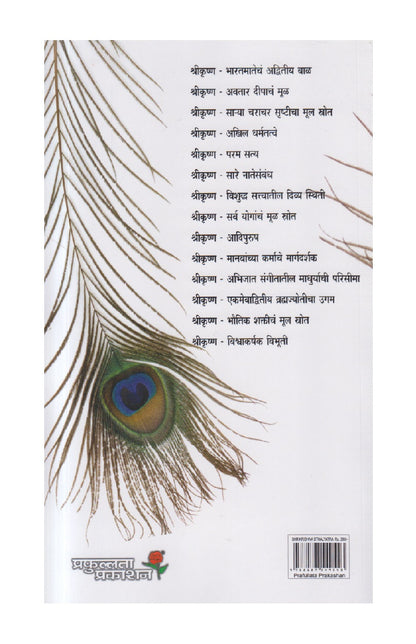 श्रीकृष्ण - भारतमातेचं अद्वितीय बाळ
श्रीकृष्ण - अवतार दीपाचं मूळ
श्रीकृष्ण - साऱ्या चराचर सृष्टीचा मूल स्रोत
श्रीकृष्ण - अखिल धर्मतत्त्वे
श्रीकृष्ण - परम सत्य
श्रीकृष्ण - सारे नातेसंबंध
श्रीकृष्ण - विशुद्ध सत्त्वातील दिव्य स्थिती
श्रीकृष्ण - सर्व योगांचं मूळ स्रोत
श्रीकृष्ण - आदिपुरुष
श्रीकृष्ण - मानवांच्या कर्माचे मार्गदर्शक
श्रीकृष्ण - अभिजात संगीतातील माधुर्याची परिसीमा
श्रीकृष्ण - एकमेवाद्वितीय ब्रह्मज्योतीचा उगम
श्रीकृष्ण - भौतिक शक्तीचं मूल स्रोत
श्रीकृष्ण - विश्वाकर्षक विभूती
प्रफुल्लता
प्रकाशन
Prafullata Prakashan